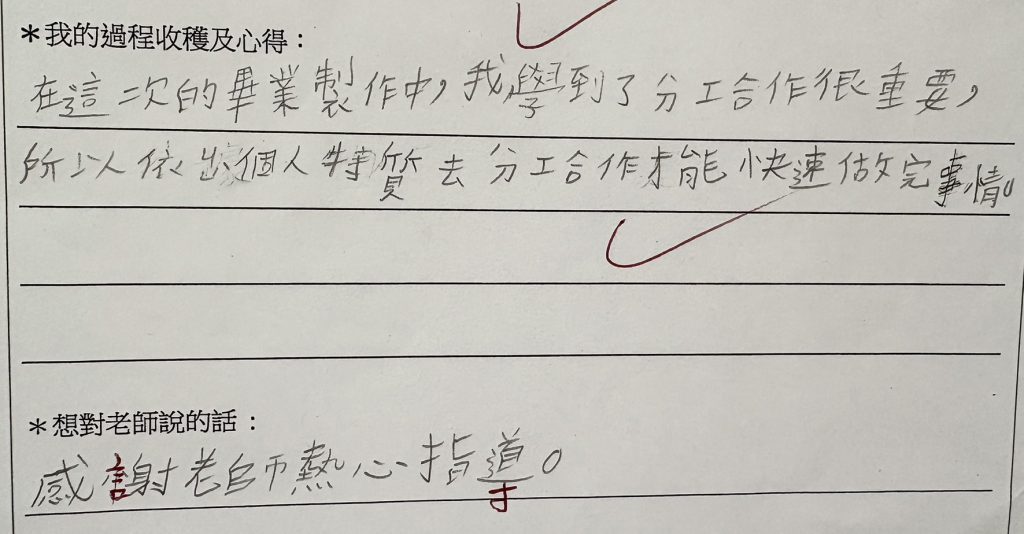 ＊我的過程收穫及心得：
在這二次的畢業製作中，我學到了分工合作很重要，
所以依出個人特質去分工合作才能快速做完事情。
＊想對老師說的話：
感謝老師熱心指導。